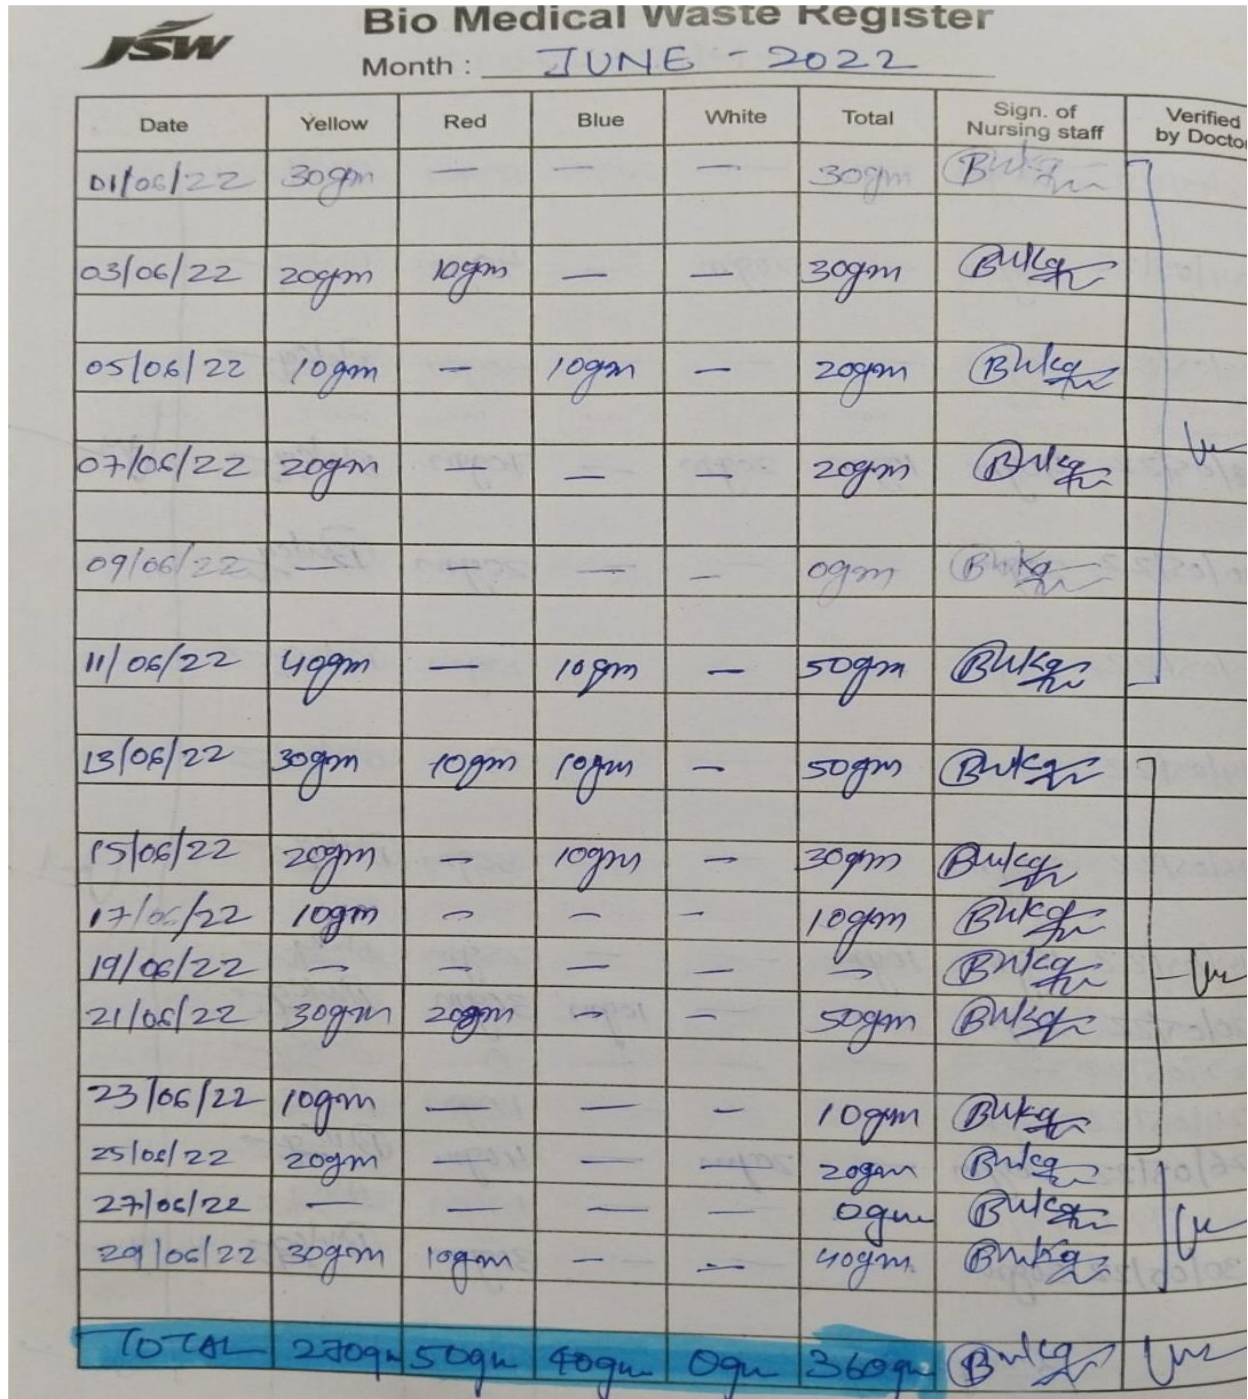 JSW
Bio Medical Waste Register
Month : JUNE - 2022
Date Yellow Red Blue White Total Sign. of Nursing staff Verified by Doctor
01/06/22 30gm — — — 30gm
03/06/22 20gm 10gm — — 30gm
05/06/22 10gm — 10gm — 20gm
07/06/22 20gm — — — 20gm
09/06/22 — — — — 0gm
11/06/22 40gm — 10gm — 50gm
13/06/22 30gm 10gm 10gm — 50gm
15/06/22 20gm — 10gm — 30gm
17/06/22 10gm — — — 10gm
19/06/22 — — — — —
21/06/22 30gm 20gm — — 50gm
23/06/22 10gm — — — 10gm
25/06/22 20gm — — — 20gm
27/06/22 — — — — 0gm
29/06/22 30gm 10gm — — 40gm
TOTAL 270gm 50gm 40gm 0gm 360gm